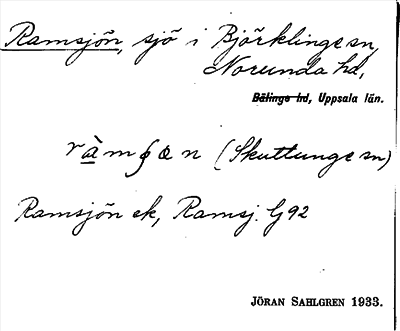 Ramsjön, sjö i Björklinge sn,
Norunda hd,
Bälinge hd, Uppsala län.
ràmʃøn (Skuttunge sn)
Ramsjön ek, Ramsj. G92
JÖRAN SAHLGREN 1933.